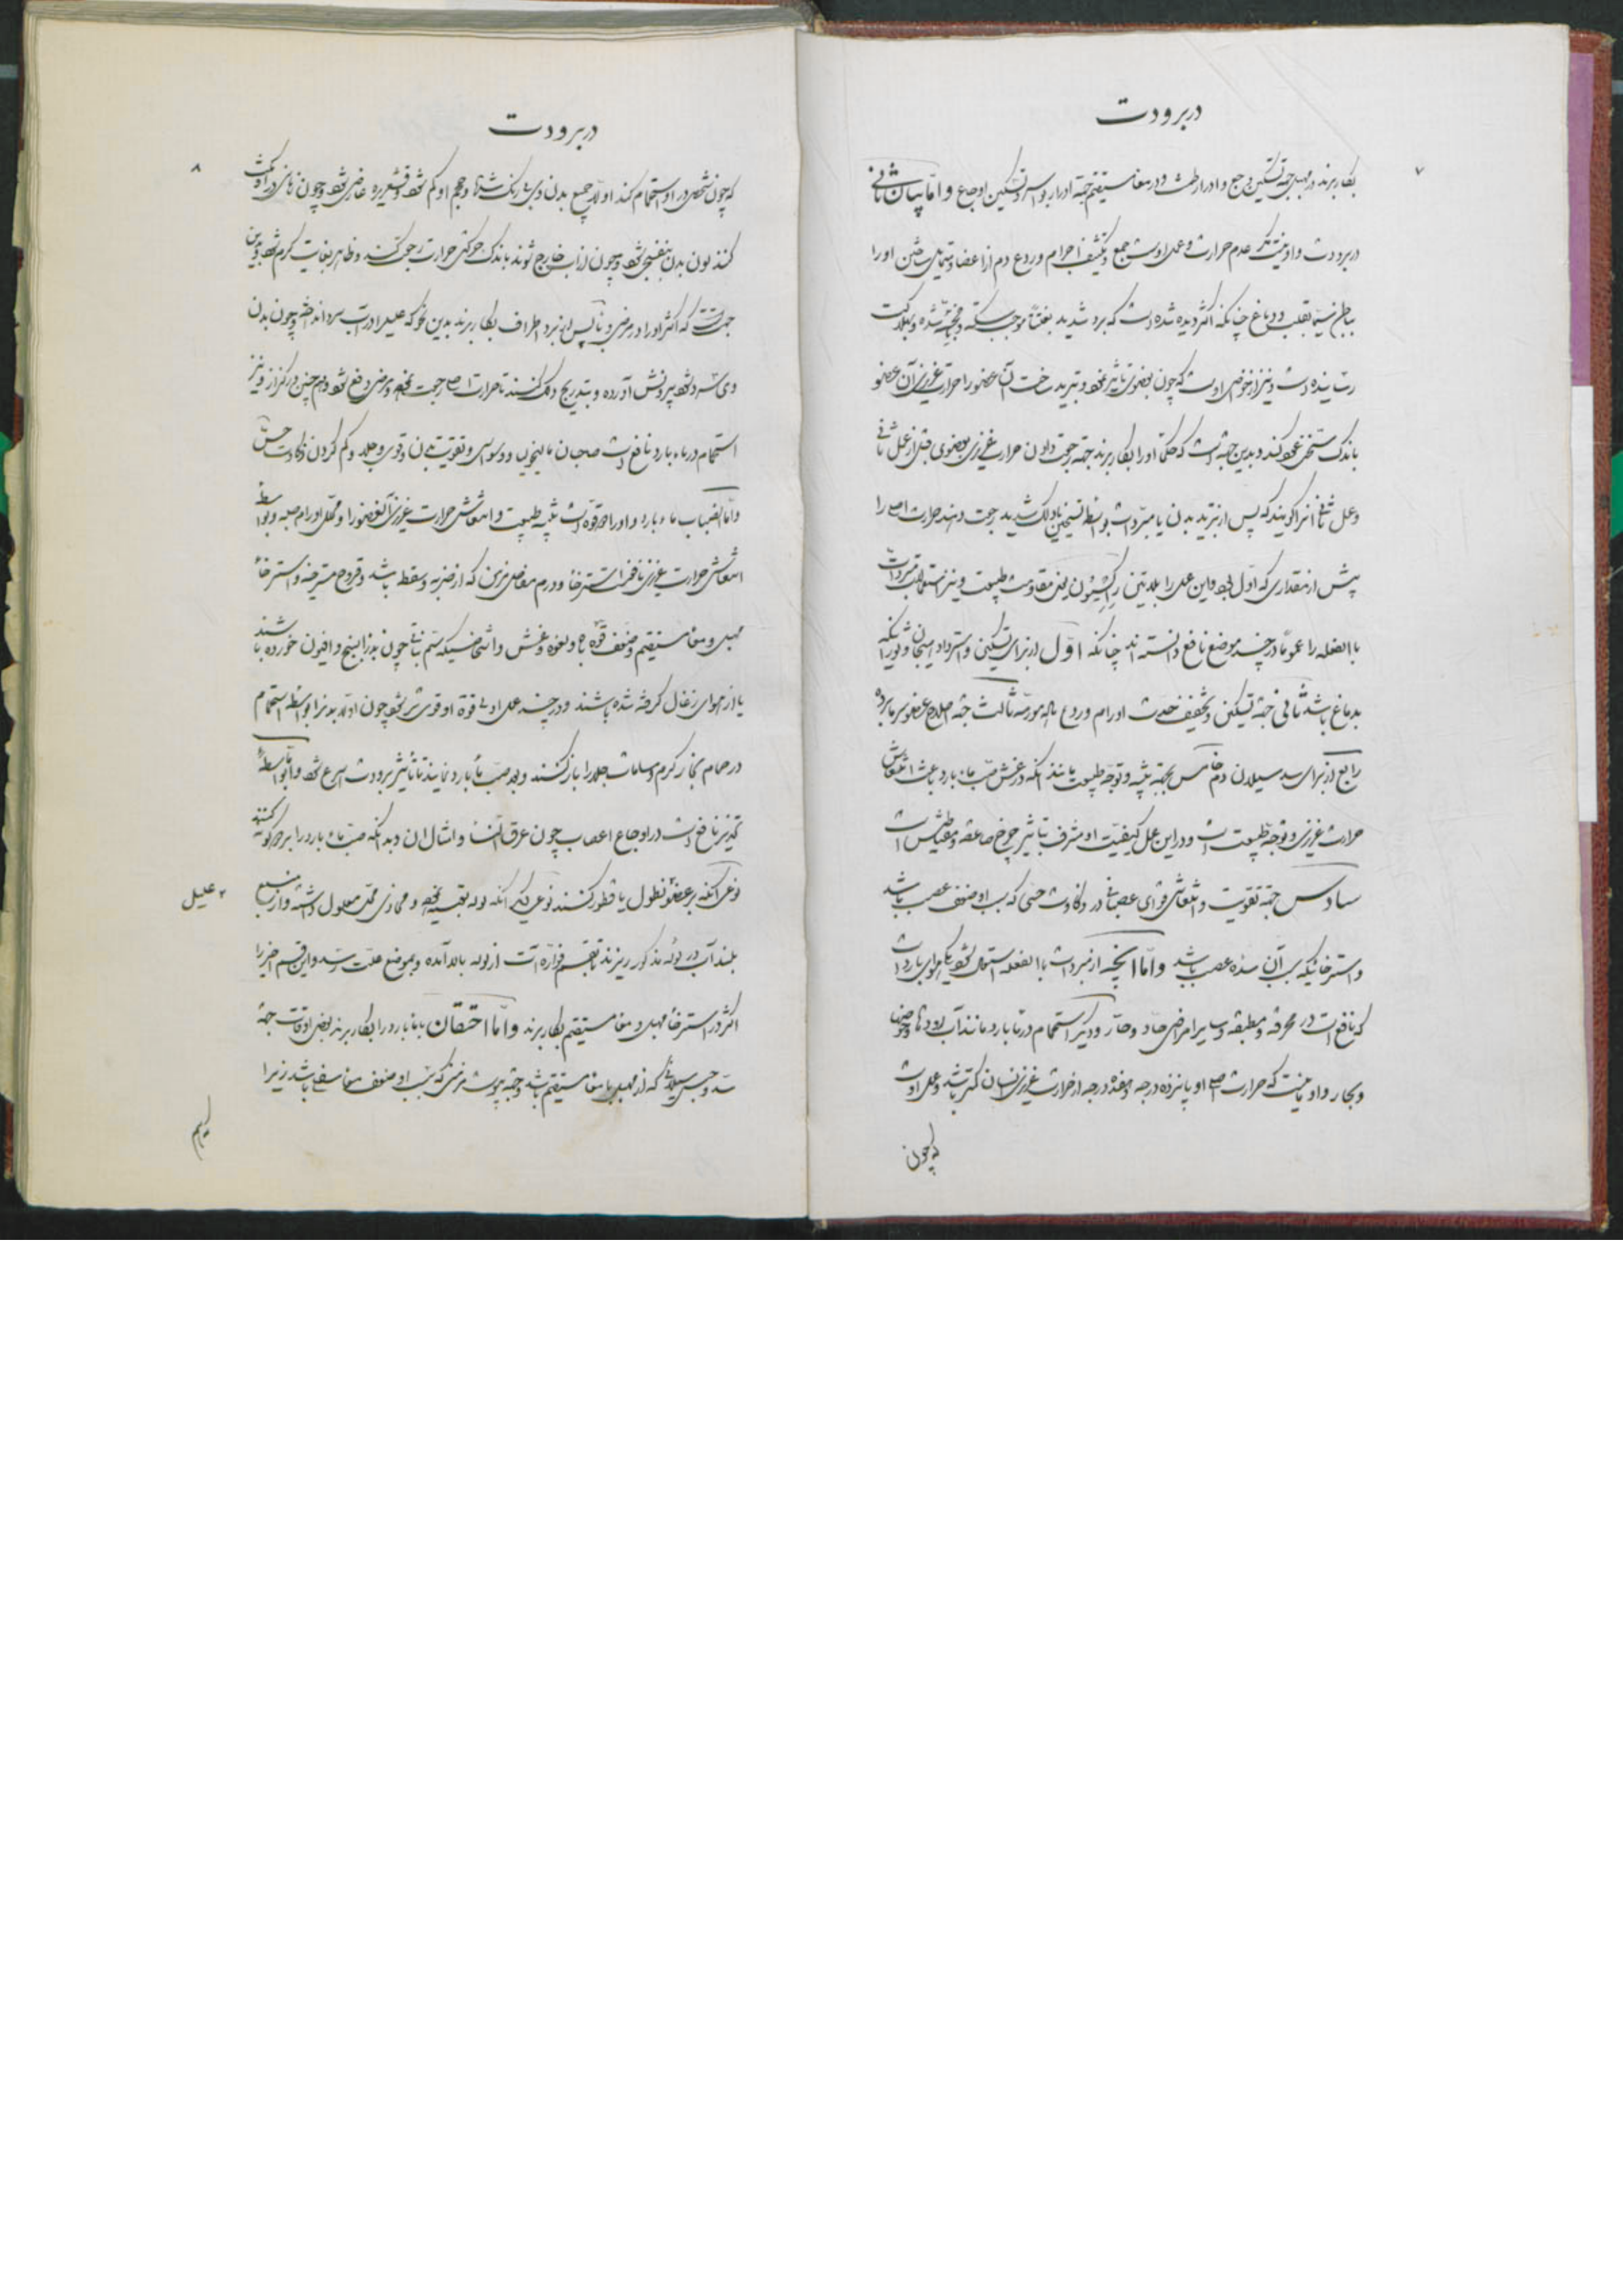 در برودت
۷
بکار برند در مهبل جهة تسکین وجع و ادرار طمث و در معاء مستقیم جهة ادرار بواسیر و تسکین اوجاع و اما بیان ثانی
در برودت و او نیست مکر عدم حرارت و عمل اوست جمع و تکثیف اجرام و ردع دم از اعضا و متمایل ساختن او را
بباطن سیما بقلب و دماغ چنانکه اکثر دیده شده است که برد شدید بغتةً موجب سکته و شده و بهلاکت
رسانیده است و نیز از خواص اوست که چون بعضوی تاثیر نمود و تبرید ساخت آن عضو را حرارت غریزی آن عضو
باندک تسخن عود کند و بدین جهة است که حکما او را بکار برند جهة رجعت دادن حرارت غریزی بعضوی قبل از عمل ثانی
و عمل ثانی آنرا گویند که پس از تبرید بدن یا مبردات بواسطه تسخین یا دلک شدید رجعت دهند حرارت اصل را
پیش از مقداری که اول بود و این عمل را بلاتین یعنی مقاومت طبیعت و نیز استعمال مبردات
بالفعل را عموما در چند موضع نافع دانسته اند چنانکه اول از برای تسکین و استرداد هیجان و ثورانیکه
بدماغ باشد ثانی جهة تسکین و تخفیف حدت اورام و ردع ماده مورمه ثالث جهة اصلاح عضو سرمابرده
رابع از برای سد سیلان دم خامس بجهة تنبیه و توجه طبیعت مانند آنکه در غش صب ماء بارد باعث انتعاش
حرارت غریزی و توجه طبیعت است و در این عمل کیفیت او مشرف بتاثیر چرخ صاعقه و مغناطیس است
سادس جهة تقویت و انتعاش قوای عصبانی در ذکاوت حسی که سبب او ضعف عصب باشد
و استرخائیکه سبب آن سده عصب باشد و اما آنچه از مبردات بالفعل استعمال شود یکی هوای بارد است
که نافع است در محرقه و مطبقه و سایر امراض حاد و حار و دیکر استحمام در ماء بارد مانند آب رودها و حوض
و بحار و او آنیست که حرارت اصل او پانزده درجه و هفده درجه از حرارت غریزی انسان کمتر باشد و عمل او آنست
که چون
در برودت
۸
که چون شخص در او استحمام کند اولا جمیع بدن وی بی رنک شده و حجم او کم شود و قشعریره عارض شود و چون زمانی در او مکث
کند لون بدن بنفسجی شود و چون از آب خارج شوند باندک حرکتی حرارت رجعت کند و ظاهر بغایت کرم شود و بدین
جهة است که اکثر او را در مرض و برد اطراف بکار برند بدین نحو که علیل را در آب سرد انداخته و چون بدن
وی سرد شد بیرونش آورده و بتدریج دلک کنند تا حرارت اصل رجعت نموده و مرض دفع شود و هم چنین در کزاز و نیز
استحمام در ماء بارد نافع است صاحبان مالیخولیا و وسواس و تقویت بدن و قوی و جلد و کم کردن ذکاوت حس
و اما انصباب ماء بارد و او را دو قوه است تنبیه طبیعت و انتعاش حرارت غریزی آنعضو را و محلل اورام صلبه و بواسطه
انتعاش حرارت غریزی نافع است استرخاء و ورم مفاصل مزمن که از ضربه و سقطه باشد و قروح مسترخیه و استرخاء
مهبل و معاء مستقیم و ضعف قوه باه و لقوه و غش و اشخاصیکه سم نباتی چون بذرالبنج و افیون خورده باشند
یا از هوای زغال گرفته شده باشند و در چند عمل او قوة او قوی تر شود چون اولا بدن را بواسطه استحمام
در حمام بخار کرم مسامات جلد را باز کنند و بعد صب ماء بارد نمایند تا تاثیر برودت اسرع شود و اما بواسطه
تخدیر نافع است در اوجاع اعصاب چون عرق النسا و امثال آن و بدانکه صب ماء بارد را بر دو گونه کنند
نوعی آنکه بر عضو نطول یا قطور کنند نوعی دیکر آنکه لوله تعبیه نموده و محاذی محل معلول داشته و از منبع
۲ علیل
بلند آب در لوله مذکور ریزند تا بقسم فواره آب از لوله بالا آمده و بموضع علت رسد و این قسم اخیر را
اکثر در استرخاء مهبل و معاء مستقیم بکار برند و اما احتقان بماء بارد را بکار برند بعض اوقات جهة
سد و حبس سیلانی که از مهبل یا معاء مستقیم باشد و جهة یبوست مزمنی که سبب او ضعف معاء سفلی باشد زیرا